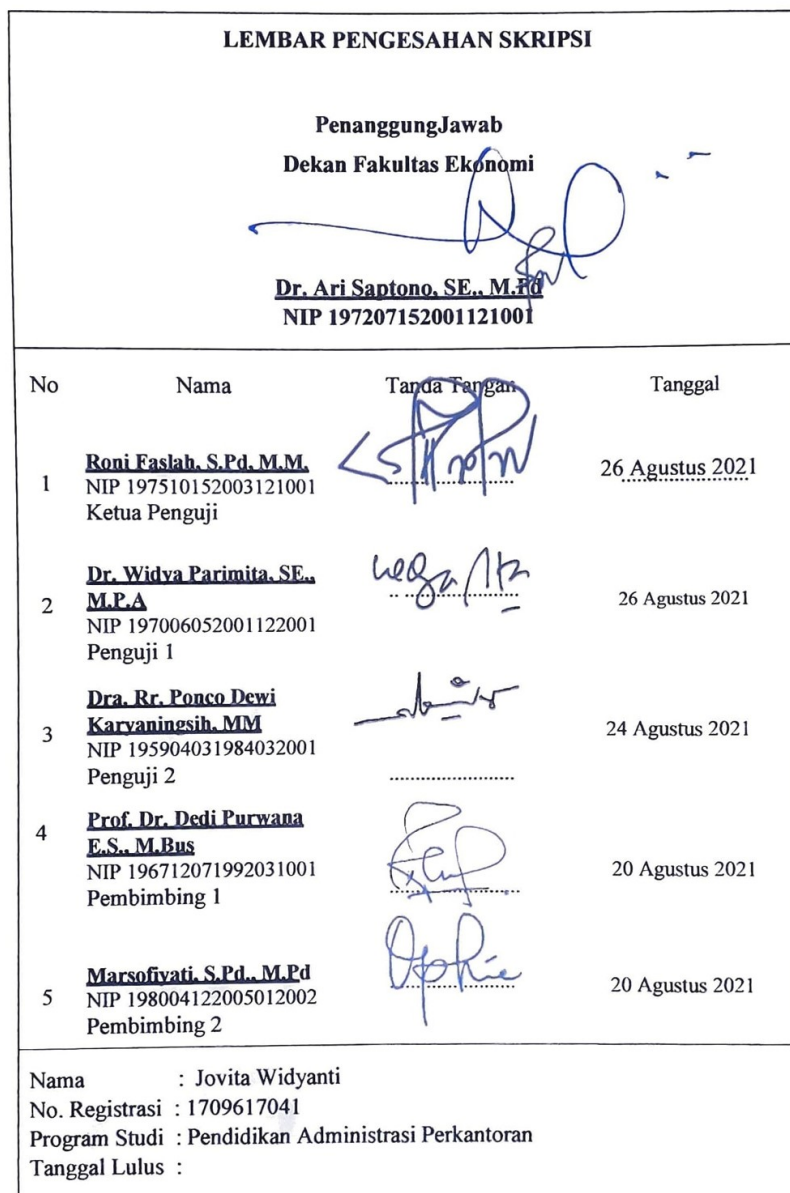 LEMBAR PENGESAHAN SKRIPSI
PenanggungJawab
Dekan Fakultas Ekonomi
Dr. Ari Saptono, SE., M.Pd
NIP 197207152001121001
No Nama Tanda Tangan Tanggal
1 Roni Faslah, S.Pd, M.M.
NIP 197510152003121001
Ketua Penguji
26 Agustus 2021
2 Dr. Widya Parimita, SE.,
M.P.A
NIP 197006052001122001
Penguji 1
26 Agustus 2021
3 Dra. Rr. Ponco Dewi
Karyaningsih, MM
NIP 195904031984032001
Penguji 2
24 Agustus 2021
4 Prof. Dr. Dedi Purwana
E.S., M.Bus
NIP 196712071992031001
Pembimbing 1
20 Agustus 2021
5 Marsofiyati, S.Pd., M.Pd
NIP 198004122005012002
Pembimbing 2
20 Agustus 2021
Nama : Jovita Widyanti
No. Registrasi : 1709617041
Program Studi : Pendidikan Administrasi Perkantoran
Tanggal Lulus :